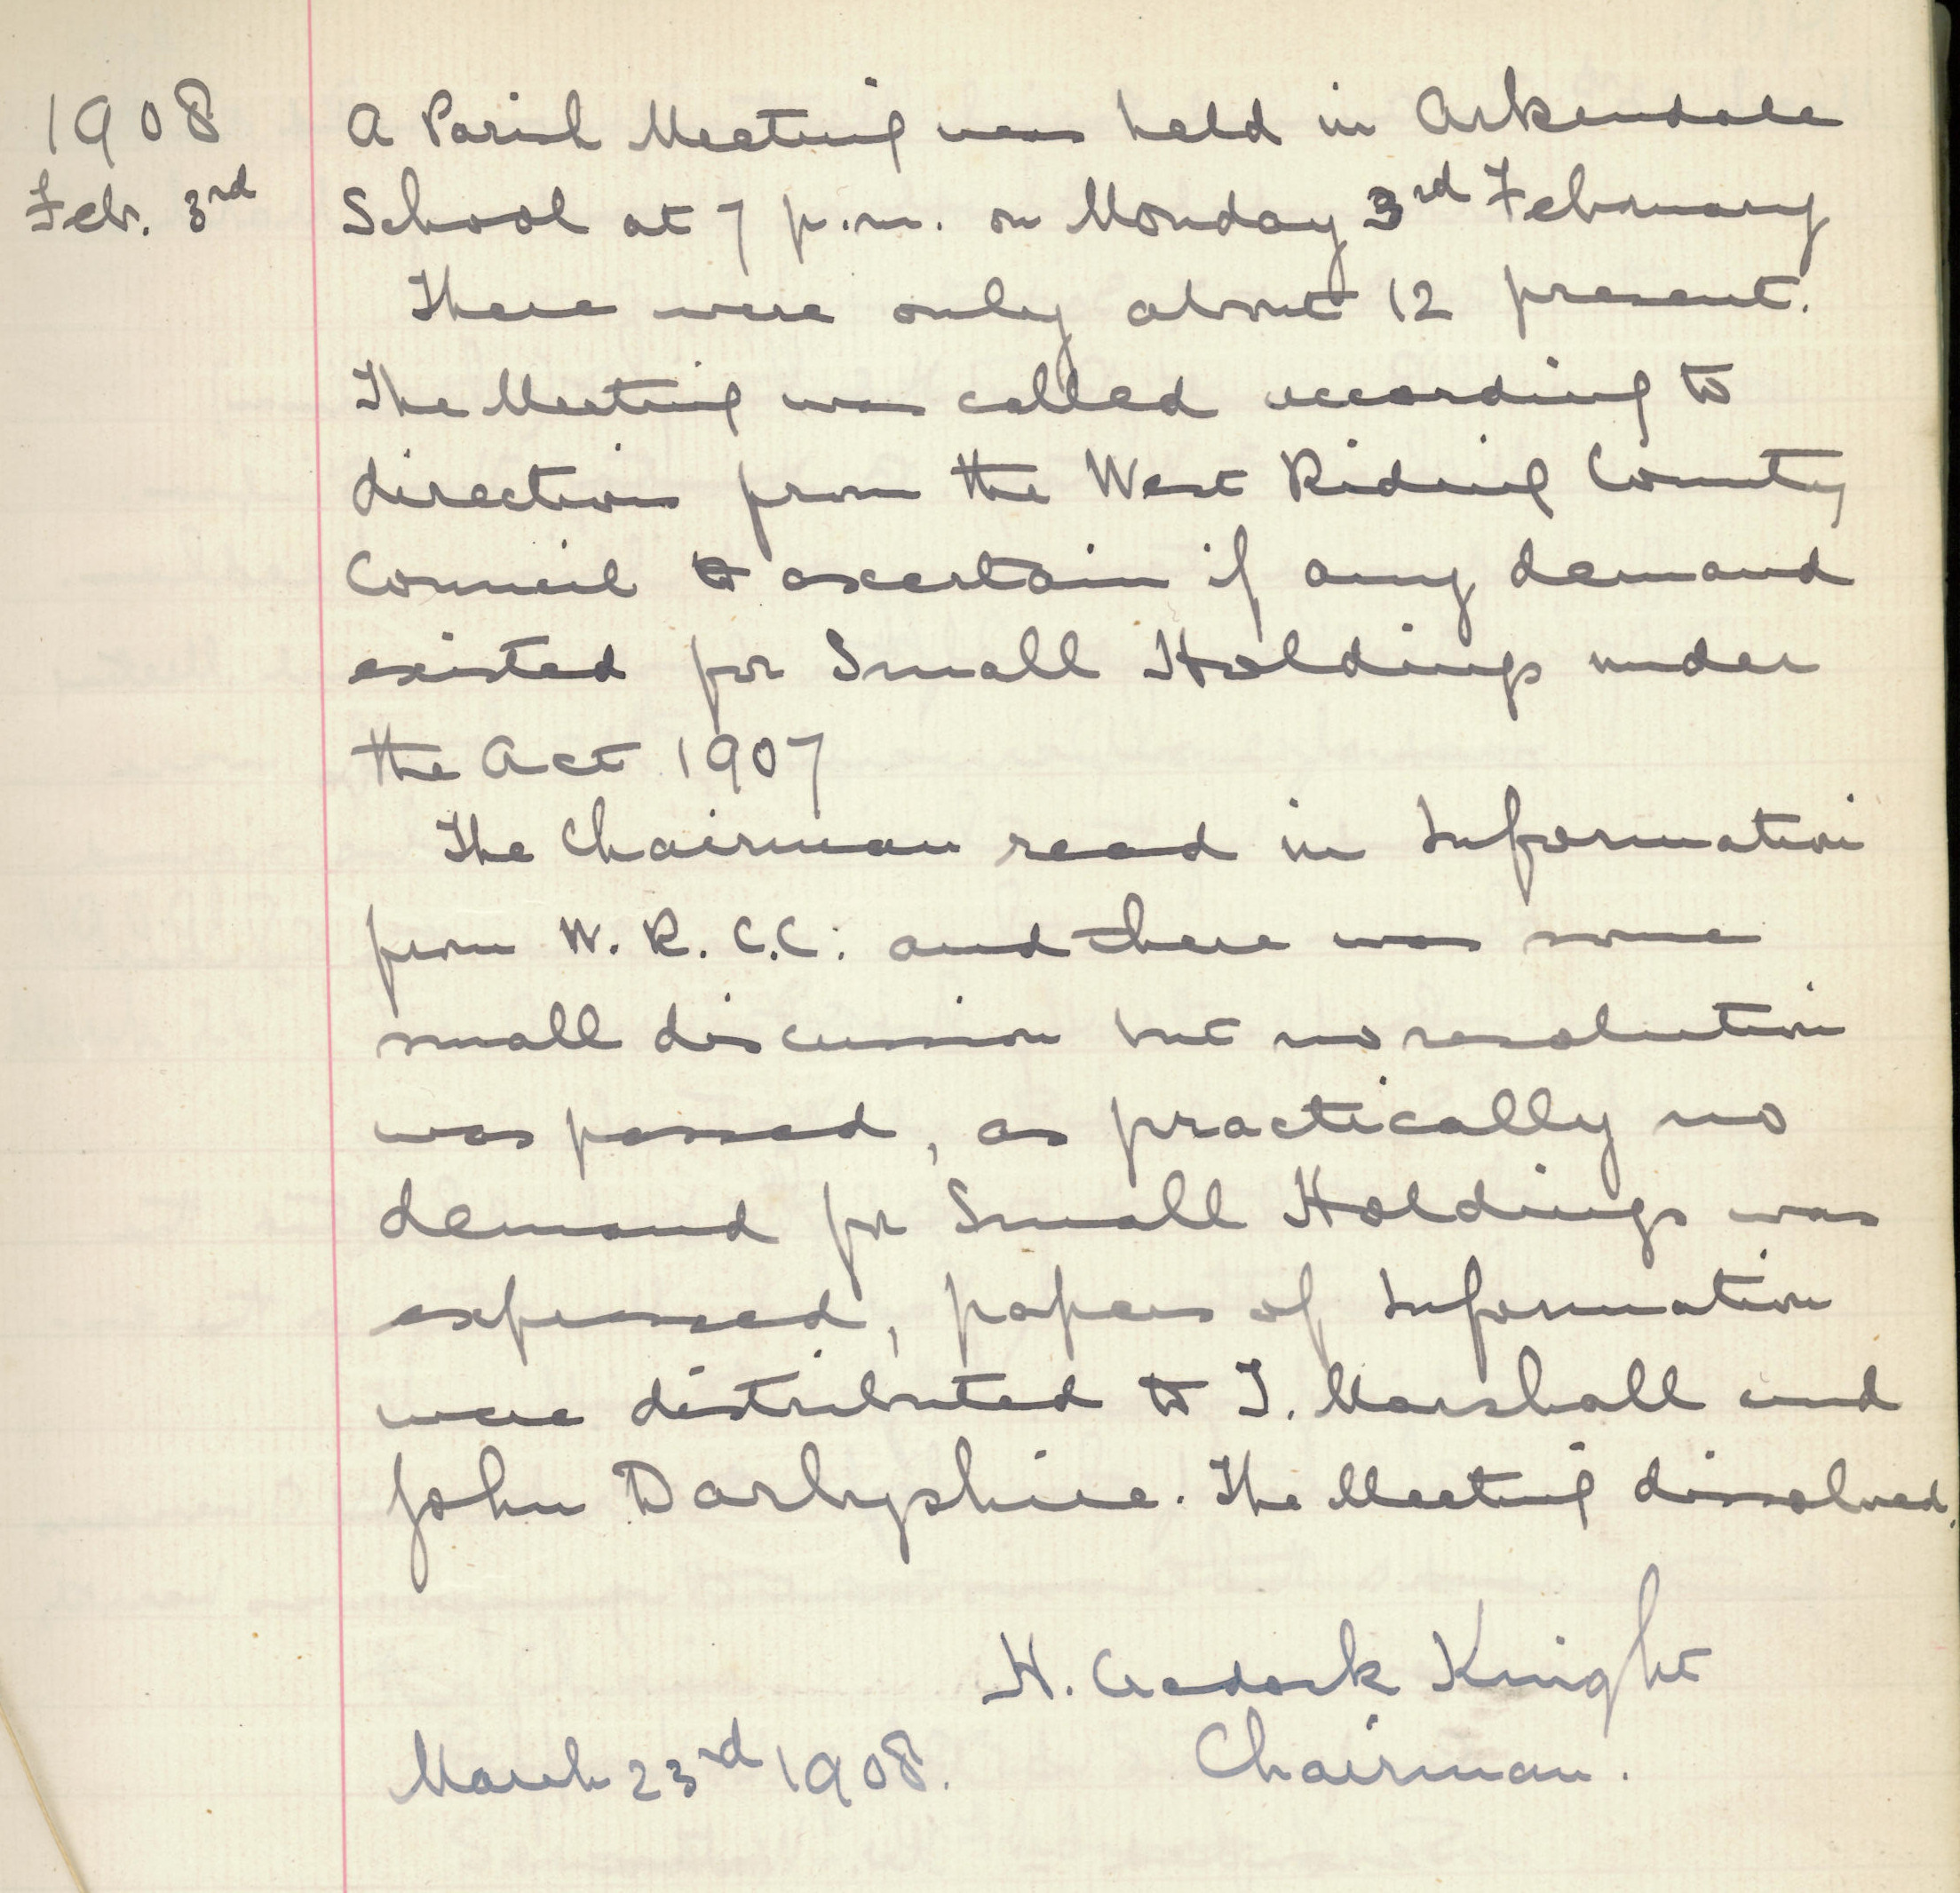 1908
Feb. 3rd
A Parish Meeting was held in Arkendale
School at 7 p.m. on Monday 3rd February
There were only about 12 present.
The Meeting was called according to
direction from the West Riding County
Council to ascertain if any demand
existed for Small Holdings under
the Act 1907
The Chairman read in Information
from W. R. C.C. and there was some
small discussion but no resolution
was passed, as practically no
demand for Small Holdings was
expressed, papers of Information
were distributed to T. Marshall and
John Darbyshire. The Meeting dissolved.
H. Knight
March 23rd 1908.
Chairman.